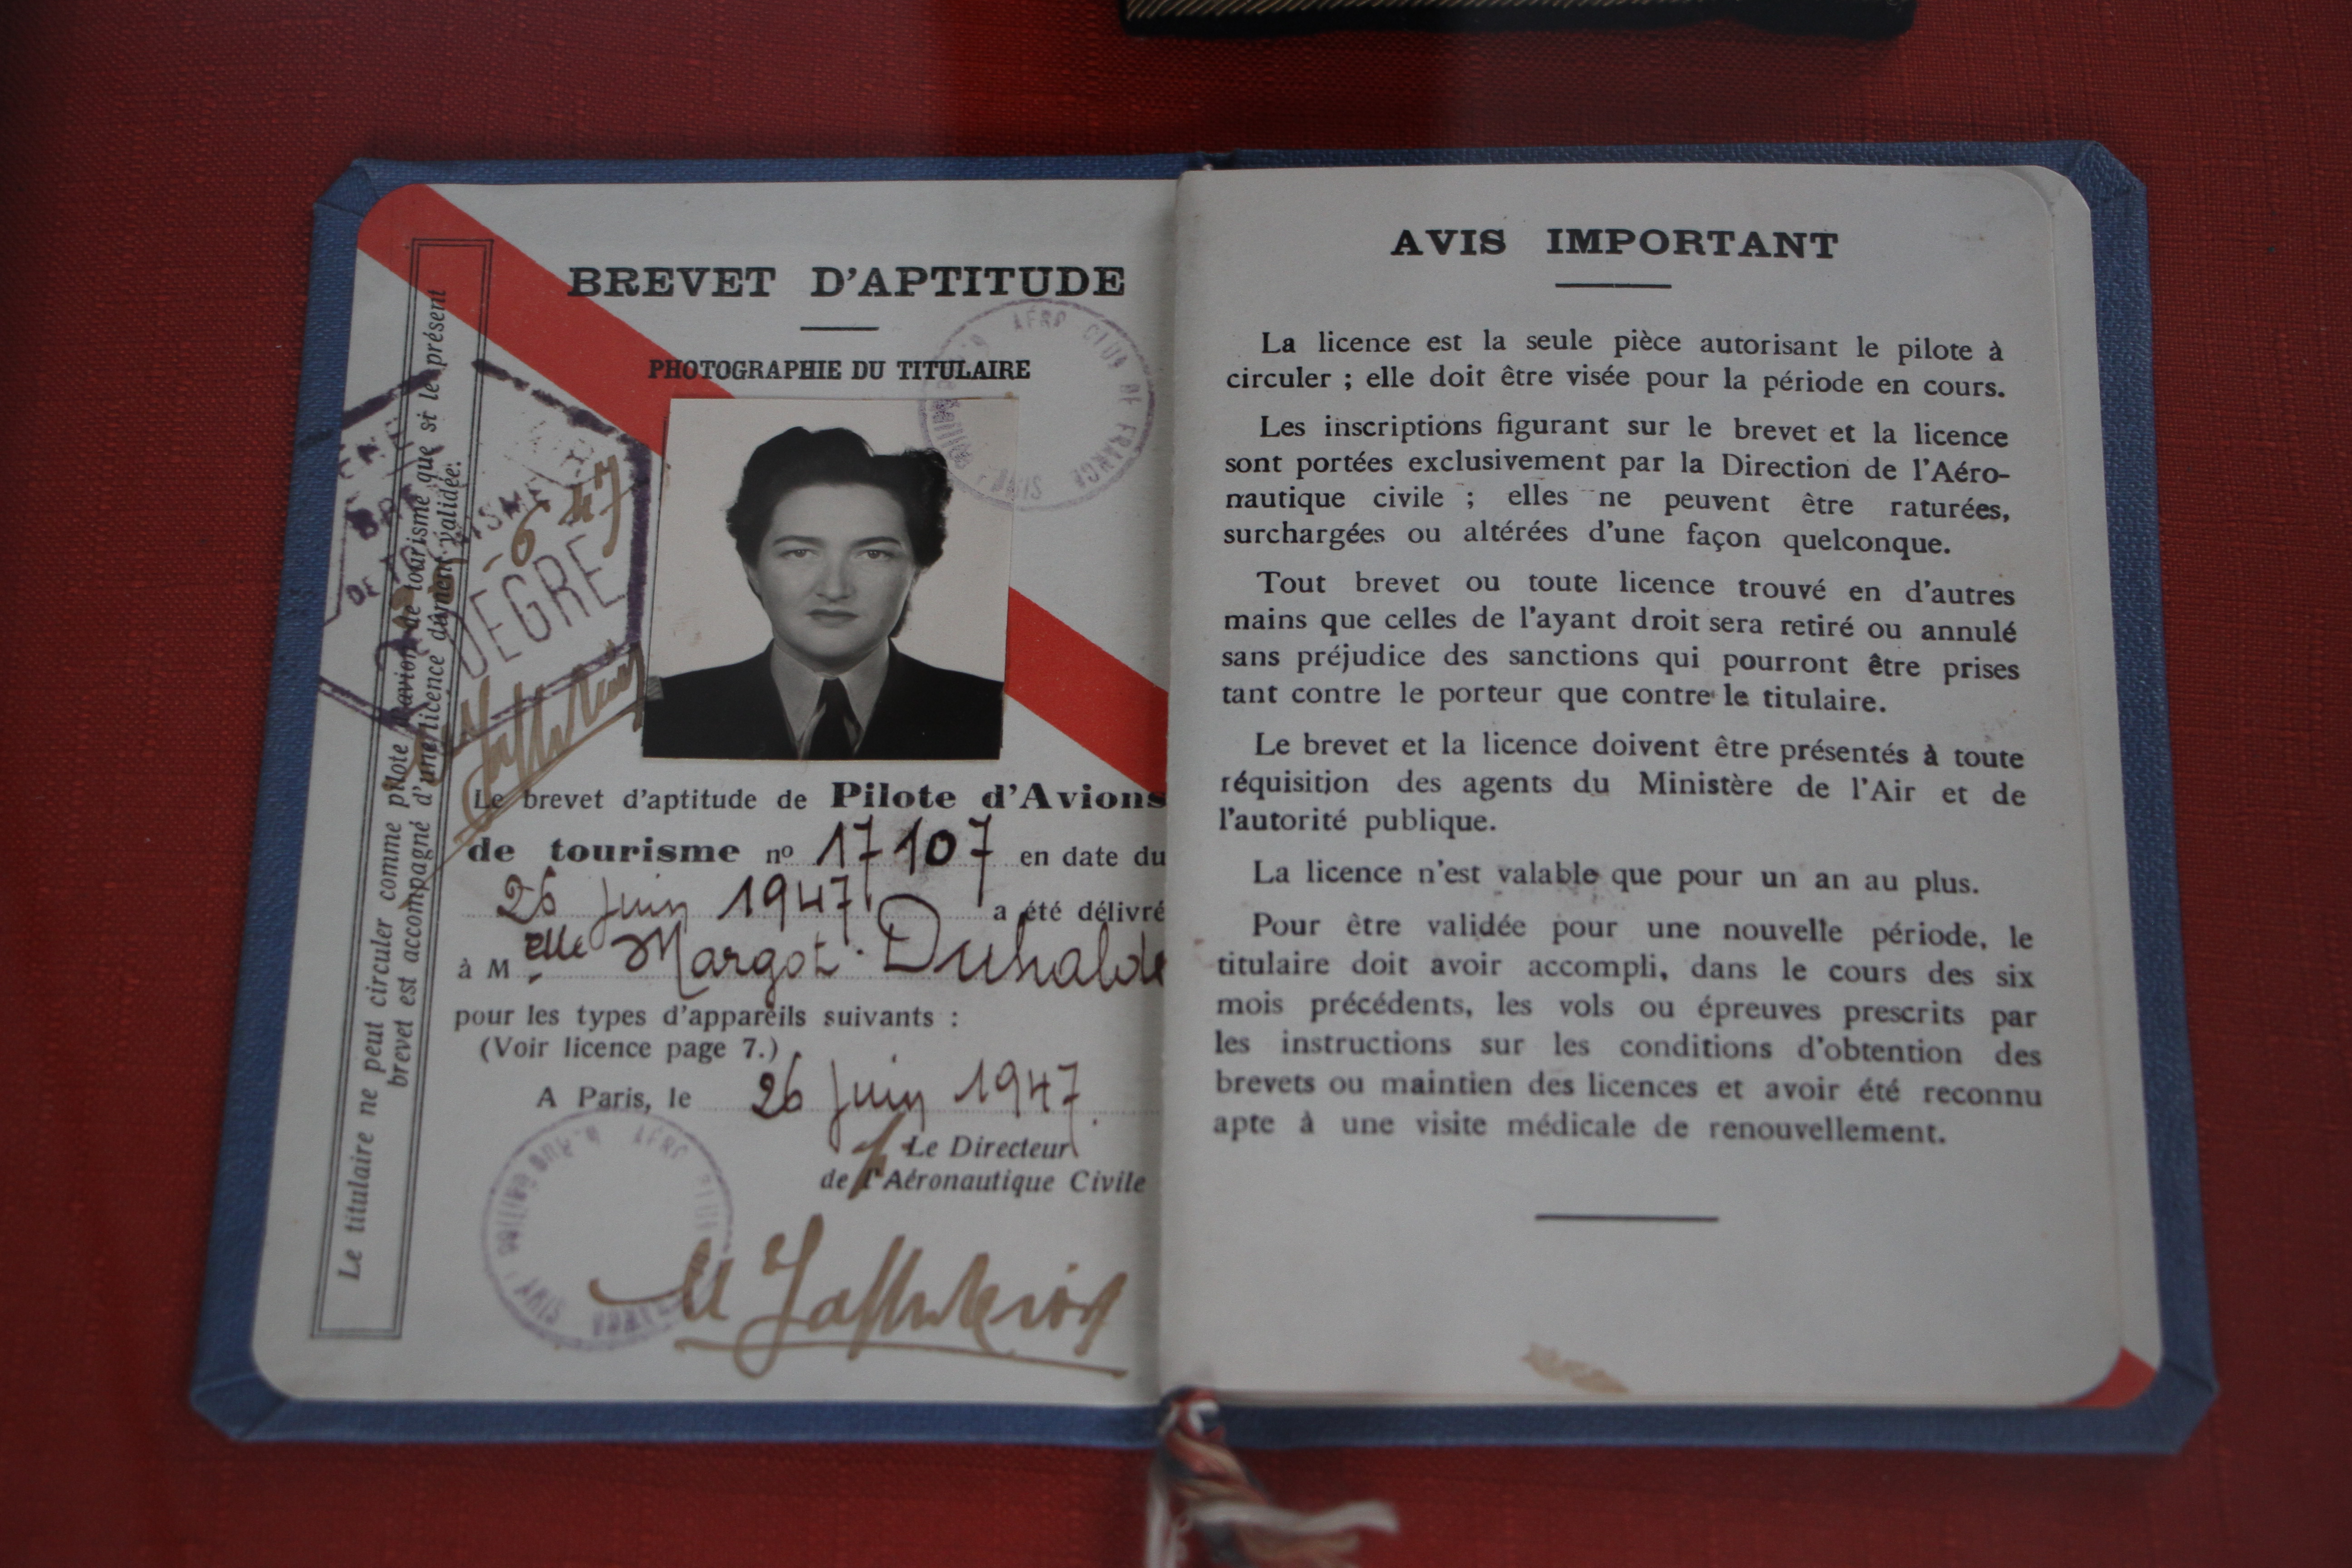 BREVET D'APTITUDE
PHOTOGRAPHIE DU TITULAIRE
AÉRO CLUB DE FRANCE
PARIS
-6 47
DEGRÉ
Le titulaire ne peut circuler comme pilote d'avion de tourisme que si le présent
brevet est accompagné d'une licence dûment validée.
Le brevet d'aptitude de Pilote d'Avions
de tourisme nº 17107 en date du
26 Juin 1947 a été délivré
à M elle Margot Duhalde
pour les types d'appareils suivants :
(Voir licence page 7.)
A Paris, le 26 Juin 1947.
Le Directeur
de l'Aéronautique Civile
AÉRO CLUB
PARIS
AVIS IMPORTANT
La licence est la seule pièce autorisant le pilote à
circuler ; elle doit être visée pour la période en cours.
Les inscriptions figurant sur le brevet et la licence
sont portées exclusivement par la Direction de l'Aéro-
nautique civile ; elles ne peuvent être raturées,
surchargées ou altérées d'une façon quelconque.
Tout brevet ou toute licence trouvé en d'autres
mains que celles de l'ayant droit sera retiré ou annulé
sans préjudice des sanctions qui pourront être prises
tant contre le porteur que contre le titulaire.
Le brevet et la licence doivent être présentés à toute
réquisition des agents du Ministère de l'Air et de
l'autorité publique.
La licence n'est valable que pour un an au plus.
Pour être validée pour une nouvelle période, le
titulaire doit avoir accompli, dans le cours des six
mois précédents, les vols ou épreuves prescrits par
les instructions sur les conditions d'obtention des
brevets ou maintien des licences et avoir été reconnu
apte à une visite médicale de renouvellement.